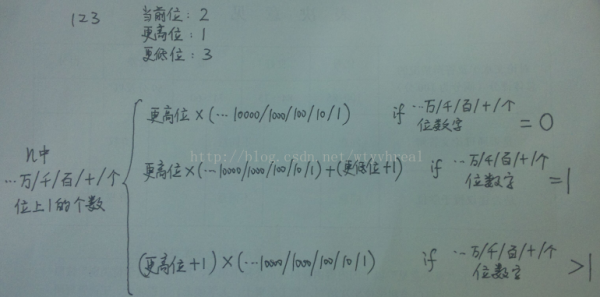 123
当前位: 2
更高位: 1
更低位: 3
n中
…万/千/百/十/个
位上1的个数
更高位×(…10000/1000/100/10/1) if …万/千/百/十/个
位数字 = 0
更高位×(…10000/1000/100/10/1)+(更低位+1) if …万/千/百/十/个
位数字 = 1
(更高位+1)×(…10000/1000/100/10/1) if …万/千/百/十/个
位数字 >1
http://blog.csdn.net/wtyvhreal